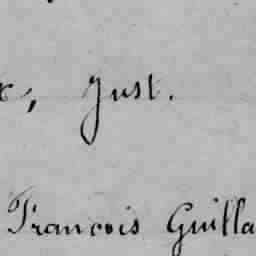 x, Just.
François Guilla